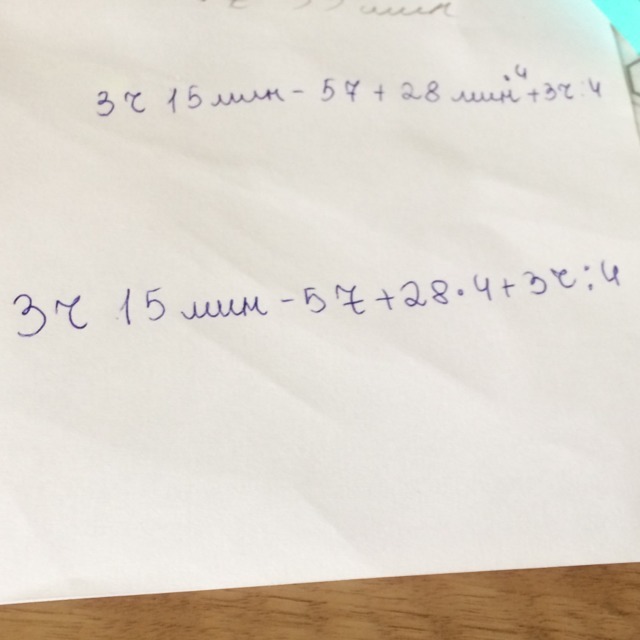 мин
3ч 15 мин - 57 + 28 мин · 4 + 3ч : 4
3ч 15 мин - 57 + 28 · 4 + 3ч : 4